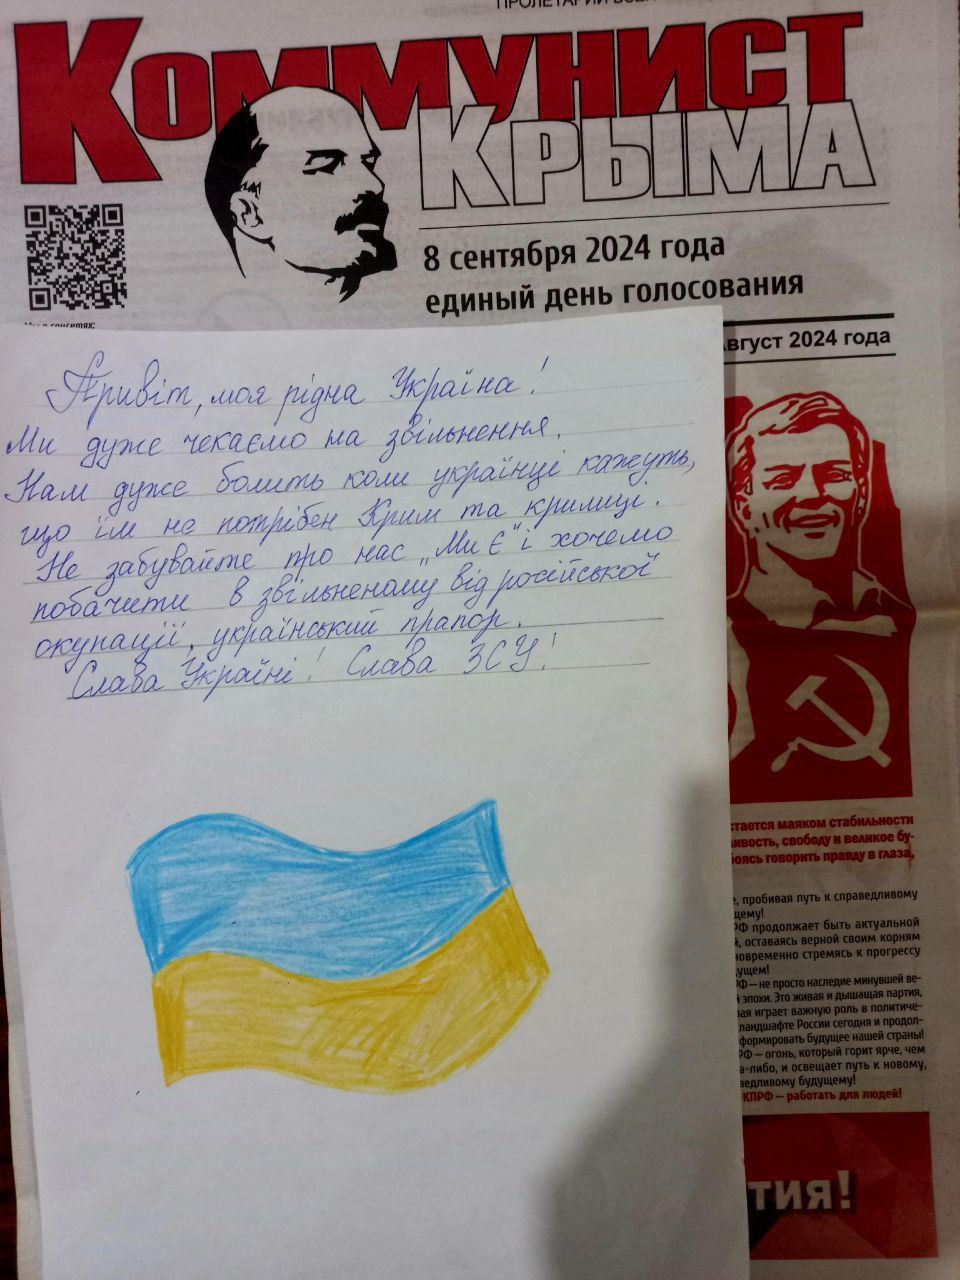 Коммунист
Крыма
8 сентября 2024 года
единый день голосования
Август 2024 года
Привіт, моя рідна Україна!
Ми дуже чекаємо на звільнення.
Нам дуже болить коли українці кажуть,
що їм не потрібен Крим та кримці.
Не забувайте про нас „Ми Є“ і хочемо
побачити в звільненому від російської
окупації, український прапор.
Слава Україні! Слава ЗСУ!
стается маяком стабильности
ливость, свободу и великое бу-
боясь говорить правду в глаза,
е, пробивая путь к справедливому
щему!
РФ продолжает быть актуальной
й, оставаясь верной своим корням
новременно стремясь к прогрессу
ущем!
РФ — не просто наследие минувшей ве-
й эпохи. Это живая и дышащая партия,
рая играет важную роль в политиче-
ландшафте России сегодня и продол-
формировать будущее нашей страны!
РФ — огонь, который горит ярче, чем
а-либо, и освещает путь к новому,
ведливому будущему!
КПРФ — работать для людей!
тия!